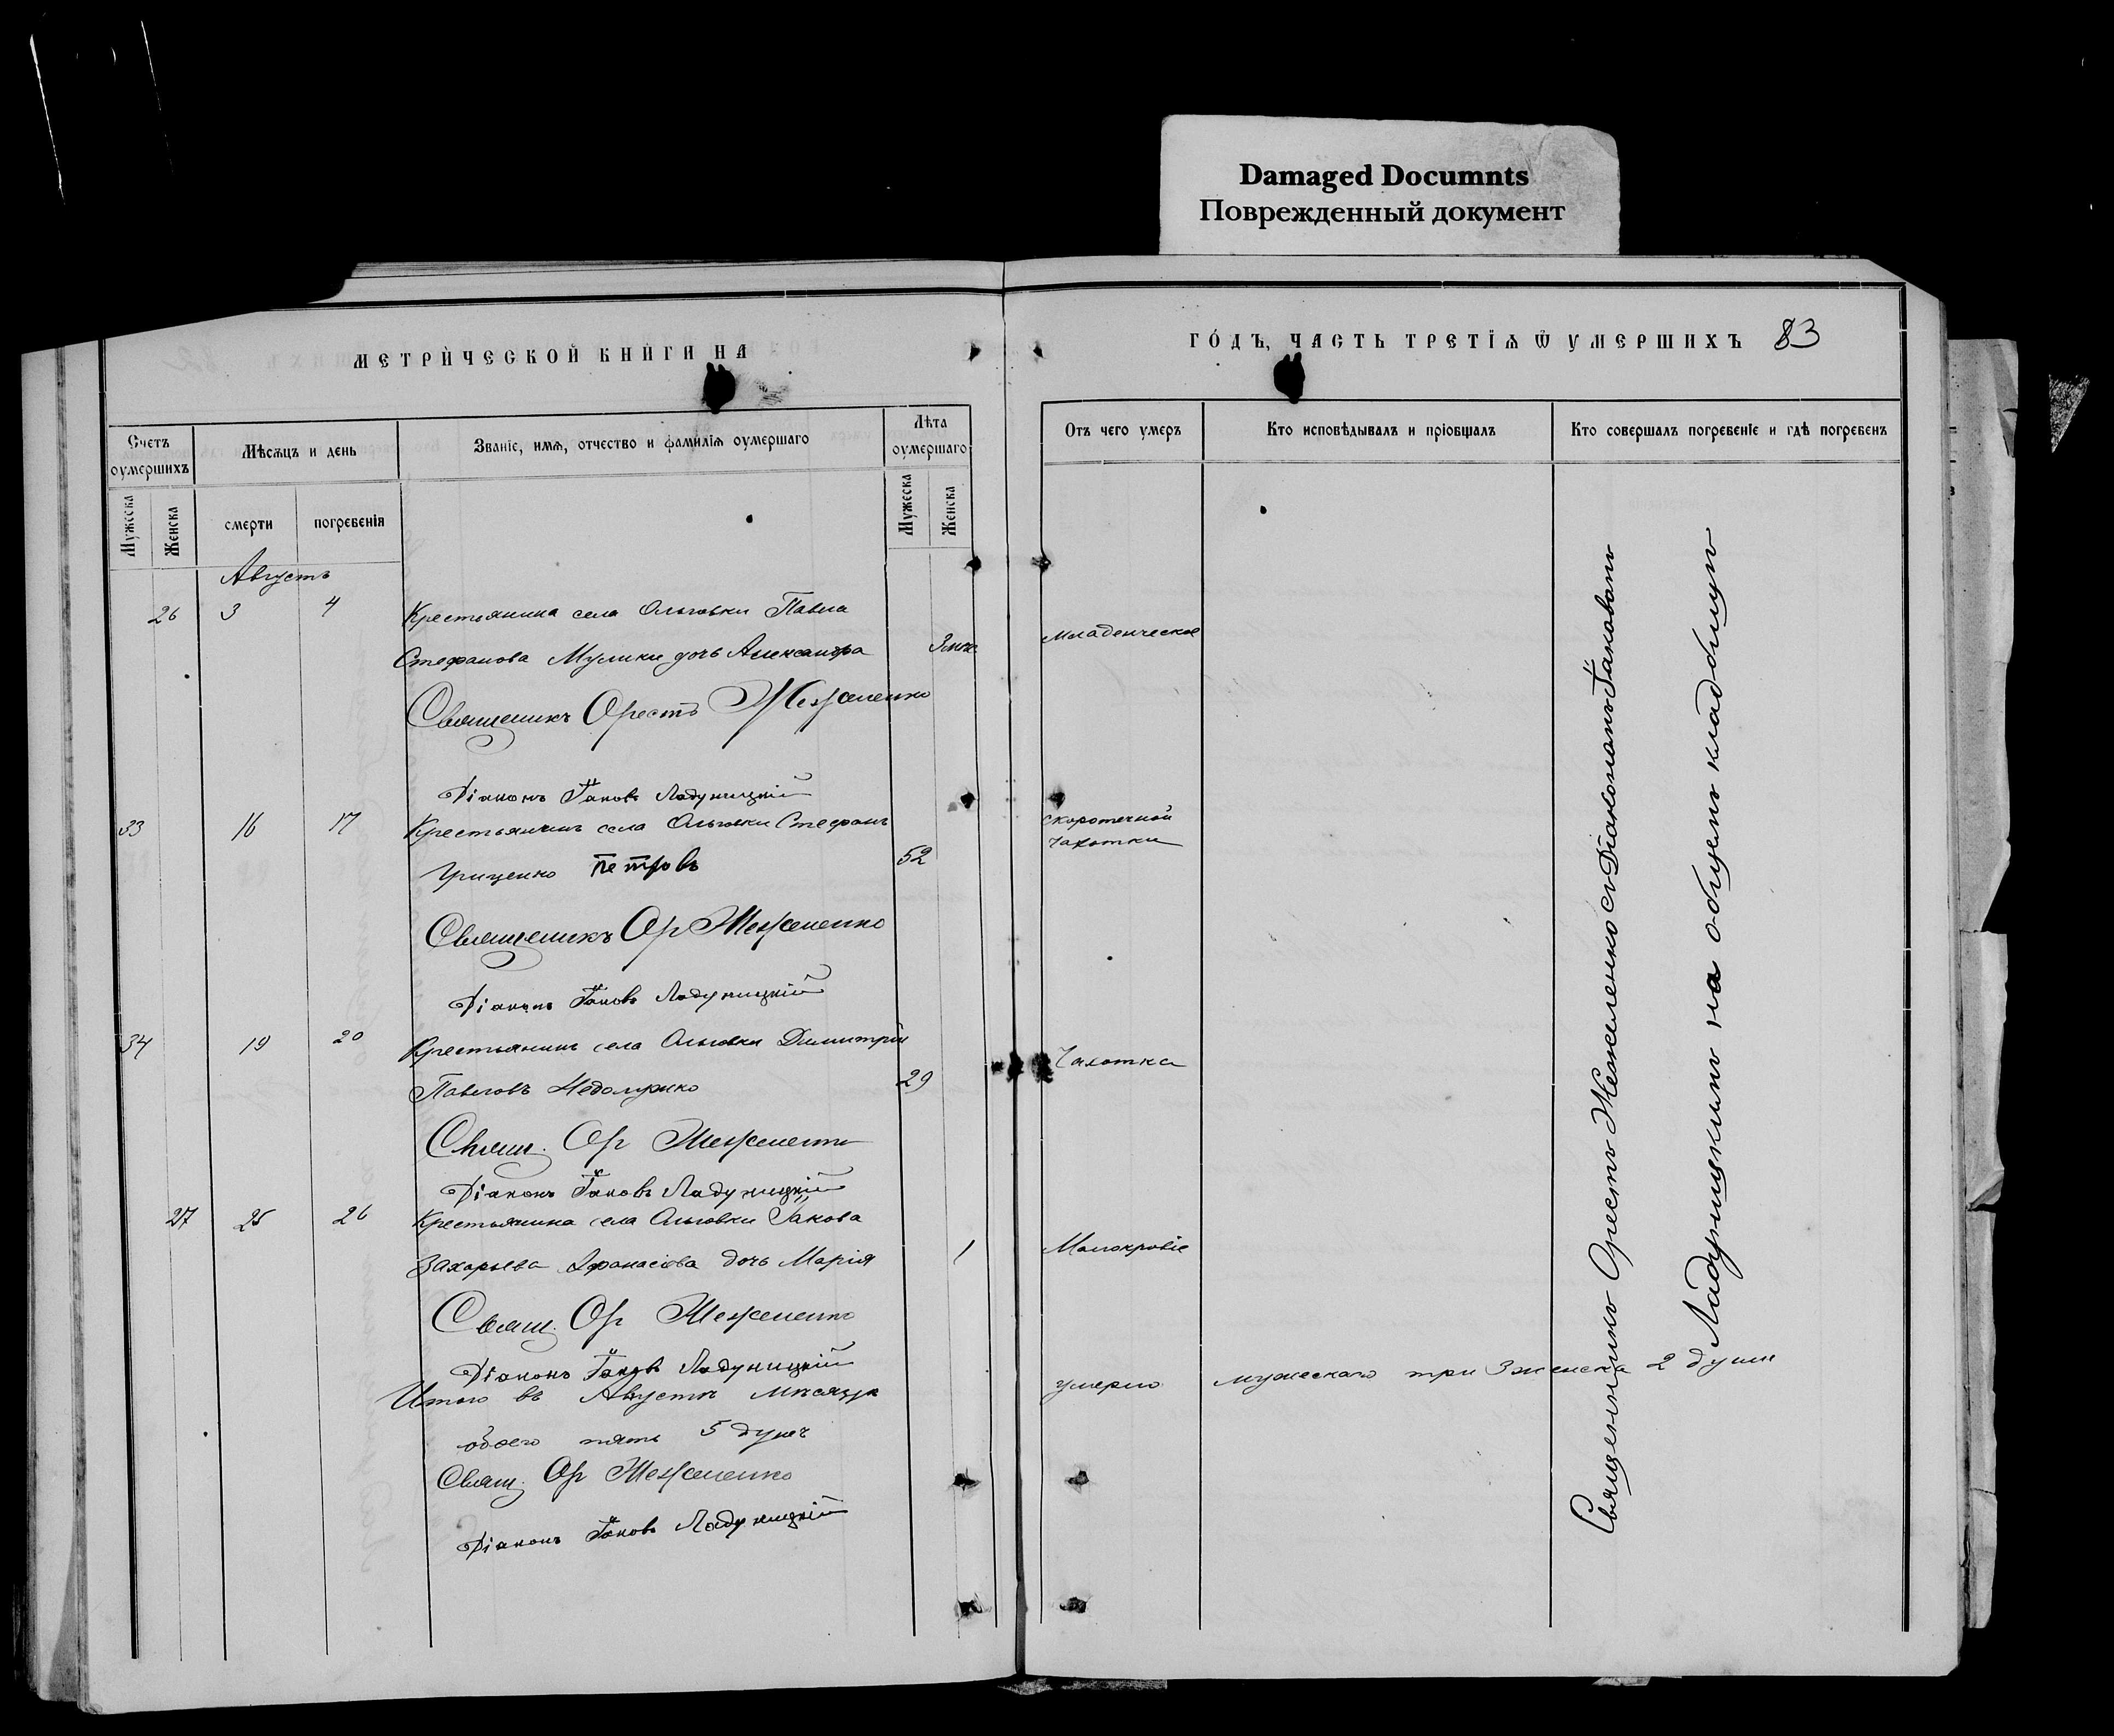 Damaged Documnts
Поврежденный документ
МЕТРИЧЕСКОЙ КНИГИ НА
ГОДЪ, ЧАСТЬ ТРЕТІЯ Ѿ УМЕРШИХЪ 83
Счетъ оумершихъ
Мѣсяцъ и день
Званіе, имя, отчество и фамилія оумершаго
Лѣта оумершаго
Отъ чего умеръ
Кто исповѣдывалъ и пріобщалъ
Кто совершалъ погребеніе и гдѣ погребенъ
Мужеска
Женска
смерти
погребенія
Мужеска
Женска
Августъ
26 3 4 Крестьянина села Ольговки Павла
Стефанова Мулики дочь Александра 3 мѣс. младенческое
Священникъ Орестъ Жежеленко
Діаконъ Іаковъ Ладуницкій
33 16 17 Крестьянинъ села Ольговки Стефанъ скоротечной
Гриценко Петровъ 52 чахотки
Священникъ Ор Жежеленко
Діаконъ Іаковъ Ладуницкій
34 19 20 Крестьянинъ села Ольговки Димитрій Чахотка
Павловъ 29
Свящ. Ор Жежеленко
Діаконъ Іаковъ Ладуницкій
27 25 26 Крестьянина села Ольговки Іакова
Захарьева Афанасіова дочь Марія 1 Малокровіе
Свящ. Ор Жежеленко
Діаконъ Іаковъ Ладуницкій
Итого въ Августѣ мѣсяцѣ умерло мужескаго три 3 женска 2 души
обоего пять 5 душъ
Свящ. Ор Жежеленко
Діаконъ Іаковъ Ладуницкій
Священникъ Орестъ Жежеленко съ Діакономъ Іаковомъ
Ладуницкимъ на общемъ кладбищѣ